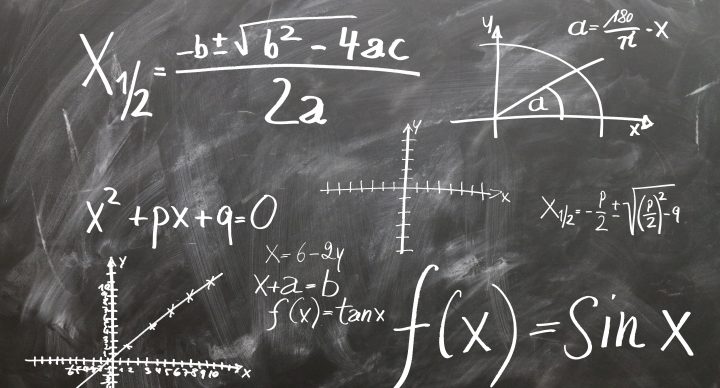 X1/2 = -b±√b²-4ac / 2a
y
a = 180/π · x
a
x
y
x
x² + px + q = 0
X1/2 = -p/2 ± √(p/2)² - q
x = 6 - 2y
x + a = b
f(x) = tan x
f(x) = Sin x
y
10
1 2 3 4 5 6 7 8 9 10
x